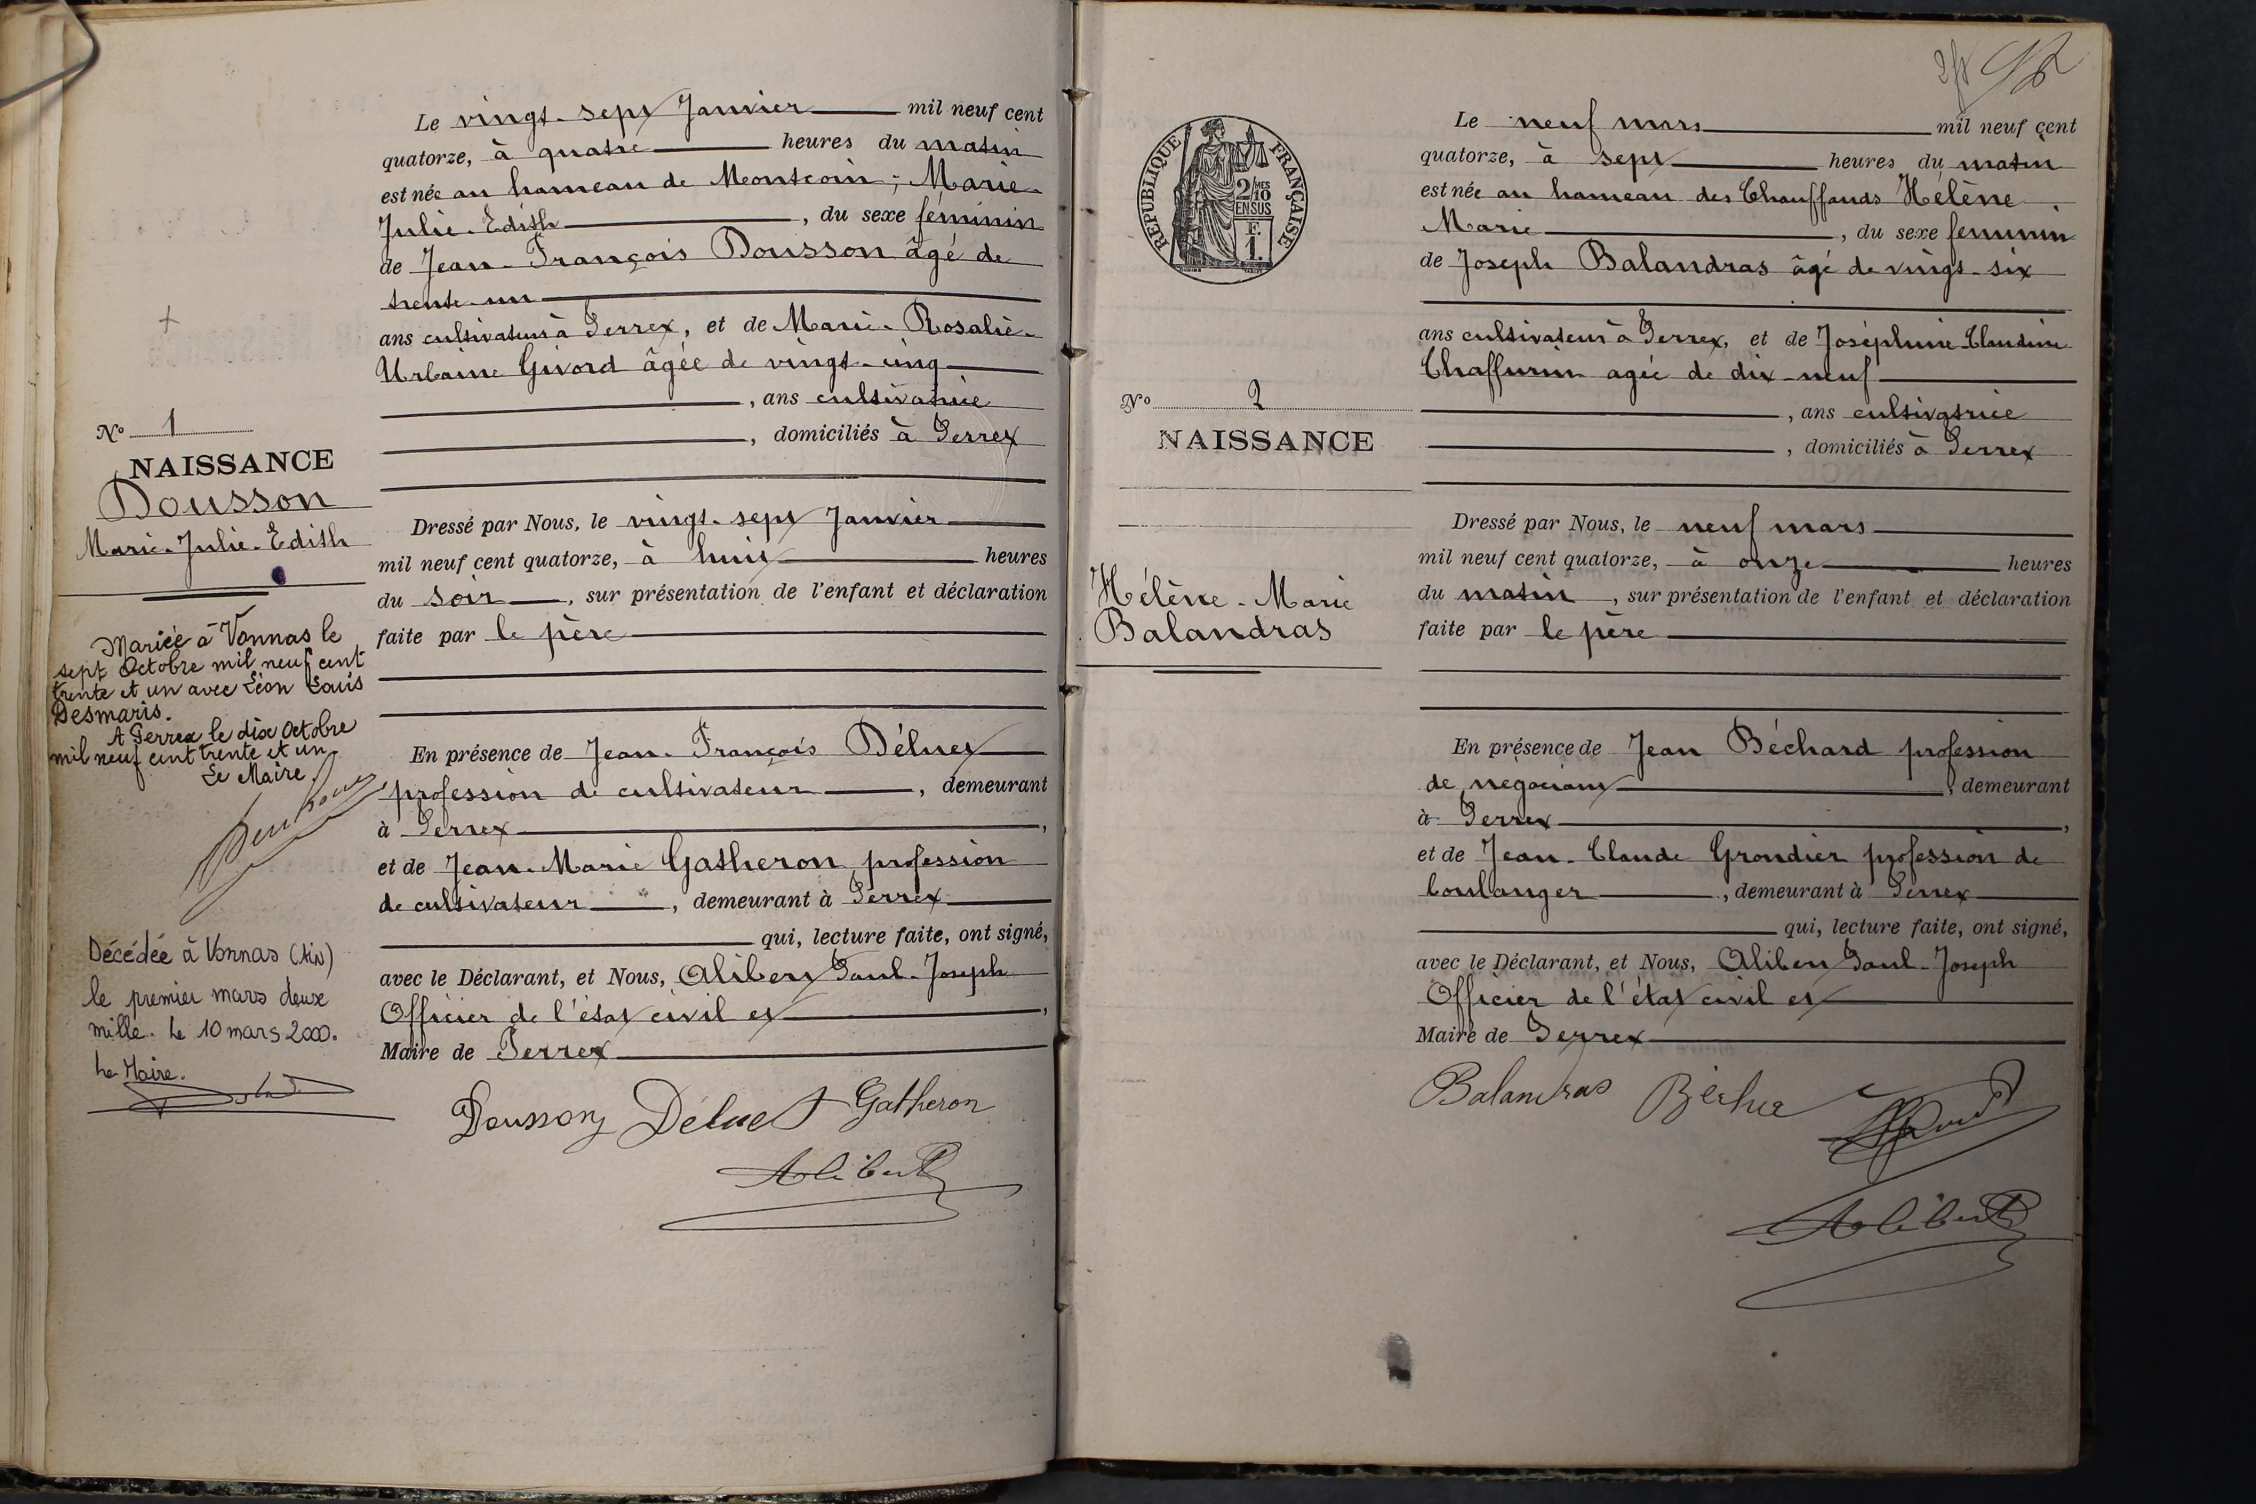 Le vingt-sept Janvier mil neuf cent
quatorze, à quatre heures du matin
est née au hameau de Montcoin; Marie-
Julie-Edith, du sexe féminin
de Jean-François Dousson âgé de
trente-un
ans cultivateur à Perrex, et de Marie-Rosalie-
Urbaine Givord âgée de vingt-cinq
, ans cultivatrice
, domiciliés à Perrex
Dressé par Nous, le vingt-sept Janvier
mil neuf cent quatorze, à huit heures
du soir, sur présentation de l'enfant et déclaration
faite par le père
En présence de Jean-François Déluet
profession de cultivateur, demeurant
à Perrex,
et de Jean-Marie Gatheron profession
de cultivateur, demeurant à Perrex
qui, lecture faite, ont signé,
avec le Déclarant, et Nous, Alibert Paul-Joseph
Officier de l'état civil et,
Maire de Perrex
Dousson Déluet Gatheron
Alibert
No 1
NAISSANCE
Dousson
Marie-Julie-Edith
Mariée à Vonnas le
sept Octobre mil neuf cent
trente et un avec Léon Louis
Desmaris.
A Perrex le dix Octobre
mil neuf cent trente et un
Le Maire.
Décédée à Vonnas (Ain)
le premier mars deux
mille. Le 10 mars 2000.
Le Maire.
RÉPUBLIQUE FRANÇAISE
2/10 MES
EN SUS
F.
1.
No 2
NAISSANCE
Hélène-Marie
Balandras
Le neuf mars mil neuf cent
quatorze, à sept heures du matin
est née au hameau des Chauffands Hélène
Marie, du sexe féminin
de Joseph Balandras âgé de vingt-six
ans cultivateur à Perrex, et de Joséphine-Claudine
Chaffurin agée de dix-neuf
, ans cultivatrice
, domiciliés à Perrex
Dressé par Nous, le neuf mars
mil neuf cent quatorze, à onze heures
du matin, sur présentation de l'enfant et déclaration
faite par le père
En présence de Jean Béchard profession
de négociant, demeurant
à Perrex,
et de Jean-Claude Grondier profession de
boulanger, demeurant à Perrex
qui, lecture faite, ont signé,
avec le Déclarant, et Nous, Alibert Paul-Joseph
Officier de l'état civil et
Maire de Perrex
Balandras
Alibert